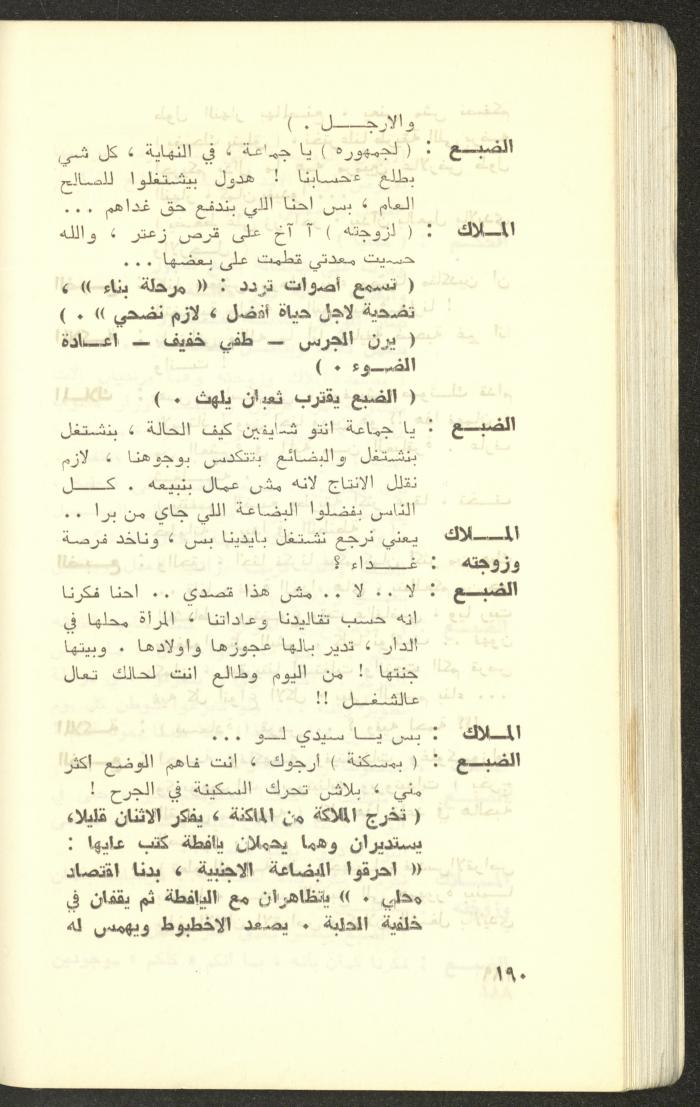 والارجــــل . )
الضبـــع : ( لجمهوره ) يا جماعة ، في النهاية ، كل شي
بطلع عحسابنا ! هدول بيشتغلوا للصالح
العام ، بس احنا اللي بندفع حق غداهم ...
المــلاك : ( لزوجته ) آ آخ على قرص زعتر ، والله
حسيت معدتي قطمت على بعضها ...
( تسمع أصوات تردد : « مرحلة بناء » ،
تضحية لاجل حياة أفضل ، لازم نضحي » . )
( يرن الجرس ــ طفي خفيف ــ اعـــادة
الضــوء . )
( الضبع يقترب ثعبان يلهث . )
الضبـــع : يا جماعة انتو شايفين كيف الحالة ، بنشتغل
بنشتغل والبضائع بتتكدس بوجوهنا ، لازم
نقلل الانتاج لانه مش عمال بنبيعه . كـــل
الناس بفضلوا البضاعة اللي جاي من برا ..
المـــــلاك يعني نرجع نشتغل بايدينا بس ، وناخد فرصة
وزوجته : غـــداء ؟
الضبـــع : لا .. لا .. مش هذا قصدي .. احنا فكرنا
انه حسب تقاليدنا وعاداتنا ، المرأة محلها في
الدار ، تدير بالها عجوزها واولادها . وبيتها
جنتها ! من اليوم وطالع انت لحالك تعال
عالشغــل !!
المــلاك : بس يــا سيدي لــو ...
الضبـــع : ( بمسكنة ) أرجوك ، انت فاهم الوضع اكثر
مني ، بلاش تحرك السكينة في الجرح !
( تخرج الملاكة من الماكنة ، يفكر الاثنان قليلا،
يستديران وهما يحملان يافطة كتب عليها :
« احرقوا البضاعة الاجنبية ، بدنا اقتصاد
محلي . » يتظاهران مع اليافطة ثم يقفان في
خلفية الحلبة . يصعد الاخطبوط ويهمس له
١٩٠